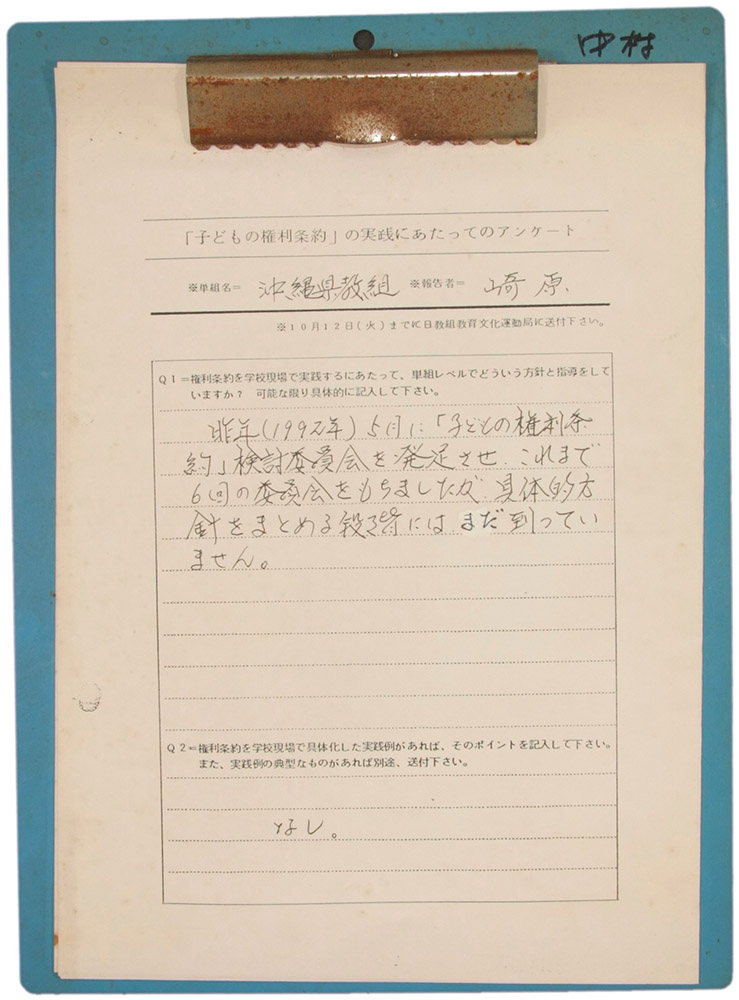 中村
「子どもの権利条約」の実践にあたってのアンケート
※単組名＝ 沖縄県教組 ※報告者＝ 崎原
※10月12日(火)までに日教組教育文化運動局に送付下さい。
Q1＝権利条約を学校現場で実践するにあたって、単組レベルでどういう方針と指導をして
いますか？ 可能な限り具体的に記入して下さい。
昨年(1992年)5月に「子どもの権利条
約」検討委員会を発足させ、これまで
6回の委員会をもちましたが、具体的方
針をまとめる段階には まだ到ってい
ません。
Q2＝権利条約を学校現場で具体化した実践例があれば、そのポイントを記入して下さい。
また、実践例の典型なものがあれば別途、送付下さい。
なし。